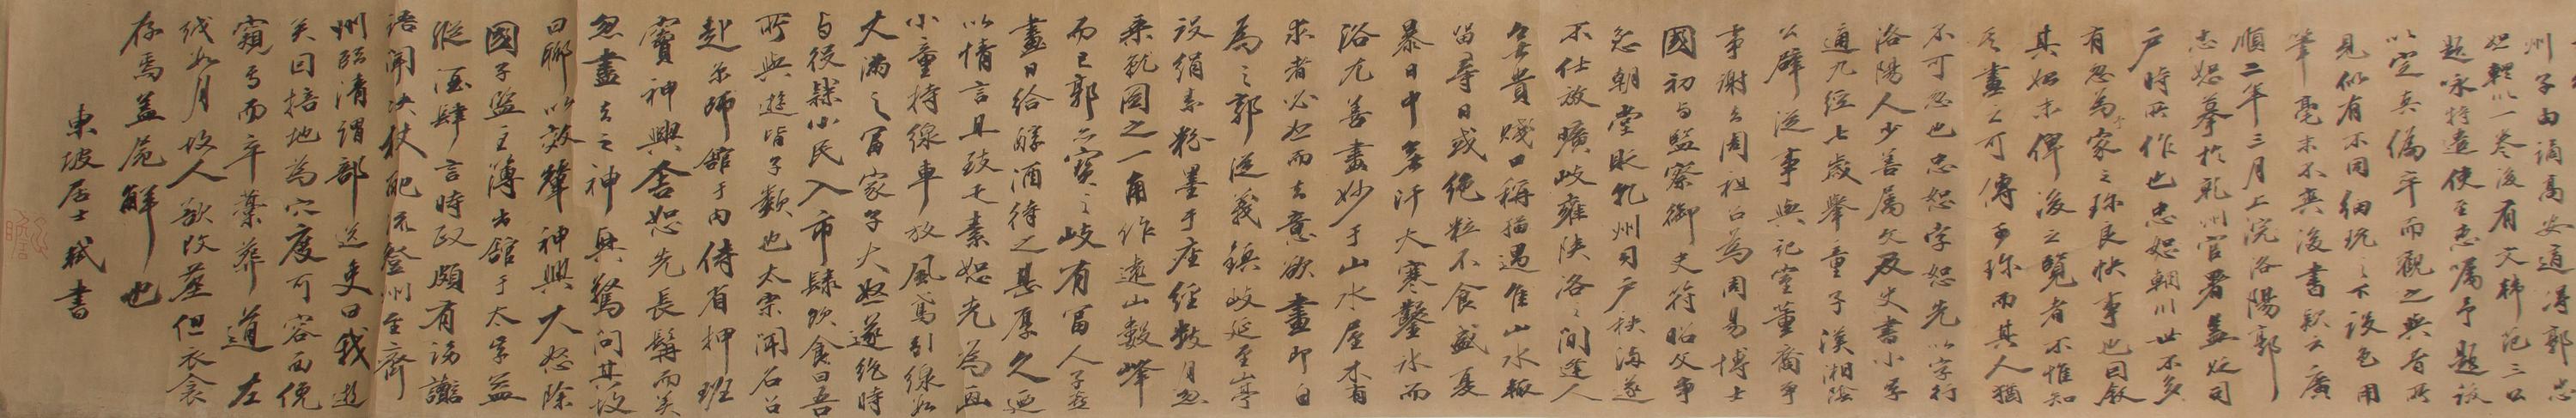 州子由謫高安道潯郭忠
恕輞川一卷後有文韓范三公
題咏特遣使至惠囑予題設
以定真偽卒而觀之與昔所
見似有不同細玩之下設色用
筆毫末不爽後書款云廣
順二年三月上浣洛陽郭
忠恕摹於乾州官署盖貶司
戶時所作也忠恕輞川世不多
有忽為予家之珍良快事也因叙
其始末俾後之覽者不惟知
其畫之可傳可珍而其人猶
不可忽也忠恕字恕先以字行
洛陽人少善屬文及史書小學
通九經七歲舉童子漢湘陰
公辟從事與記室董裔爭
事謝去周祖召為周易博士
國初與監察御史符昭文爭
忿朝堂貶乾州司戶秩滿遂
不仕放曠岐雍陝洛之間逢人
無貴賤口稱猫遇佳山水輒
留旬日或絕粒不食盛夏
暴日中無汗大寒鑿冰而
浴尤善畫妙于山水屋木有
求者必怒而去意欲畫即自
為之郭從義鎮岐延至亭
設絹素粉墨于座經數月忽
乘興圖之一角作遠山數峰
而已郭亦寶之岐有富人子喜
畫日給醇酒待之甚厚久廼
以情言且致匹素恕先為画
小童持線車放風鳶引線數
丈滿之富家子大怒遂絕時
與役隸小民入市肆飲食曰吾
所與遊皆子類也太宗聞召
赴京師館于內侍省押班
竇神興舍恕先長髯而美
忽盡去之神興驚問其故
曰聊以效顰神興大怒除
國子監主簿出館于太學益
縱酒肆言時政頗有謗讟
語聞決杖配流登州至齊
州臨清謂部送吏曰我逝
矣因掊地為穴度可容面俛
窺焉而卒藁葬道左
後數月故人欲改葬但衣衾
存焉盖尸解也
東坡居士軾書